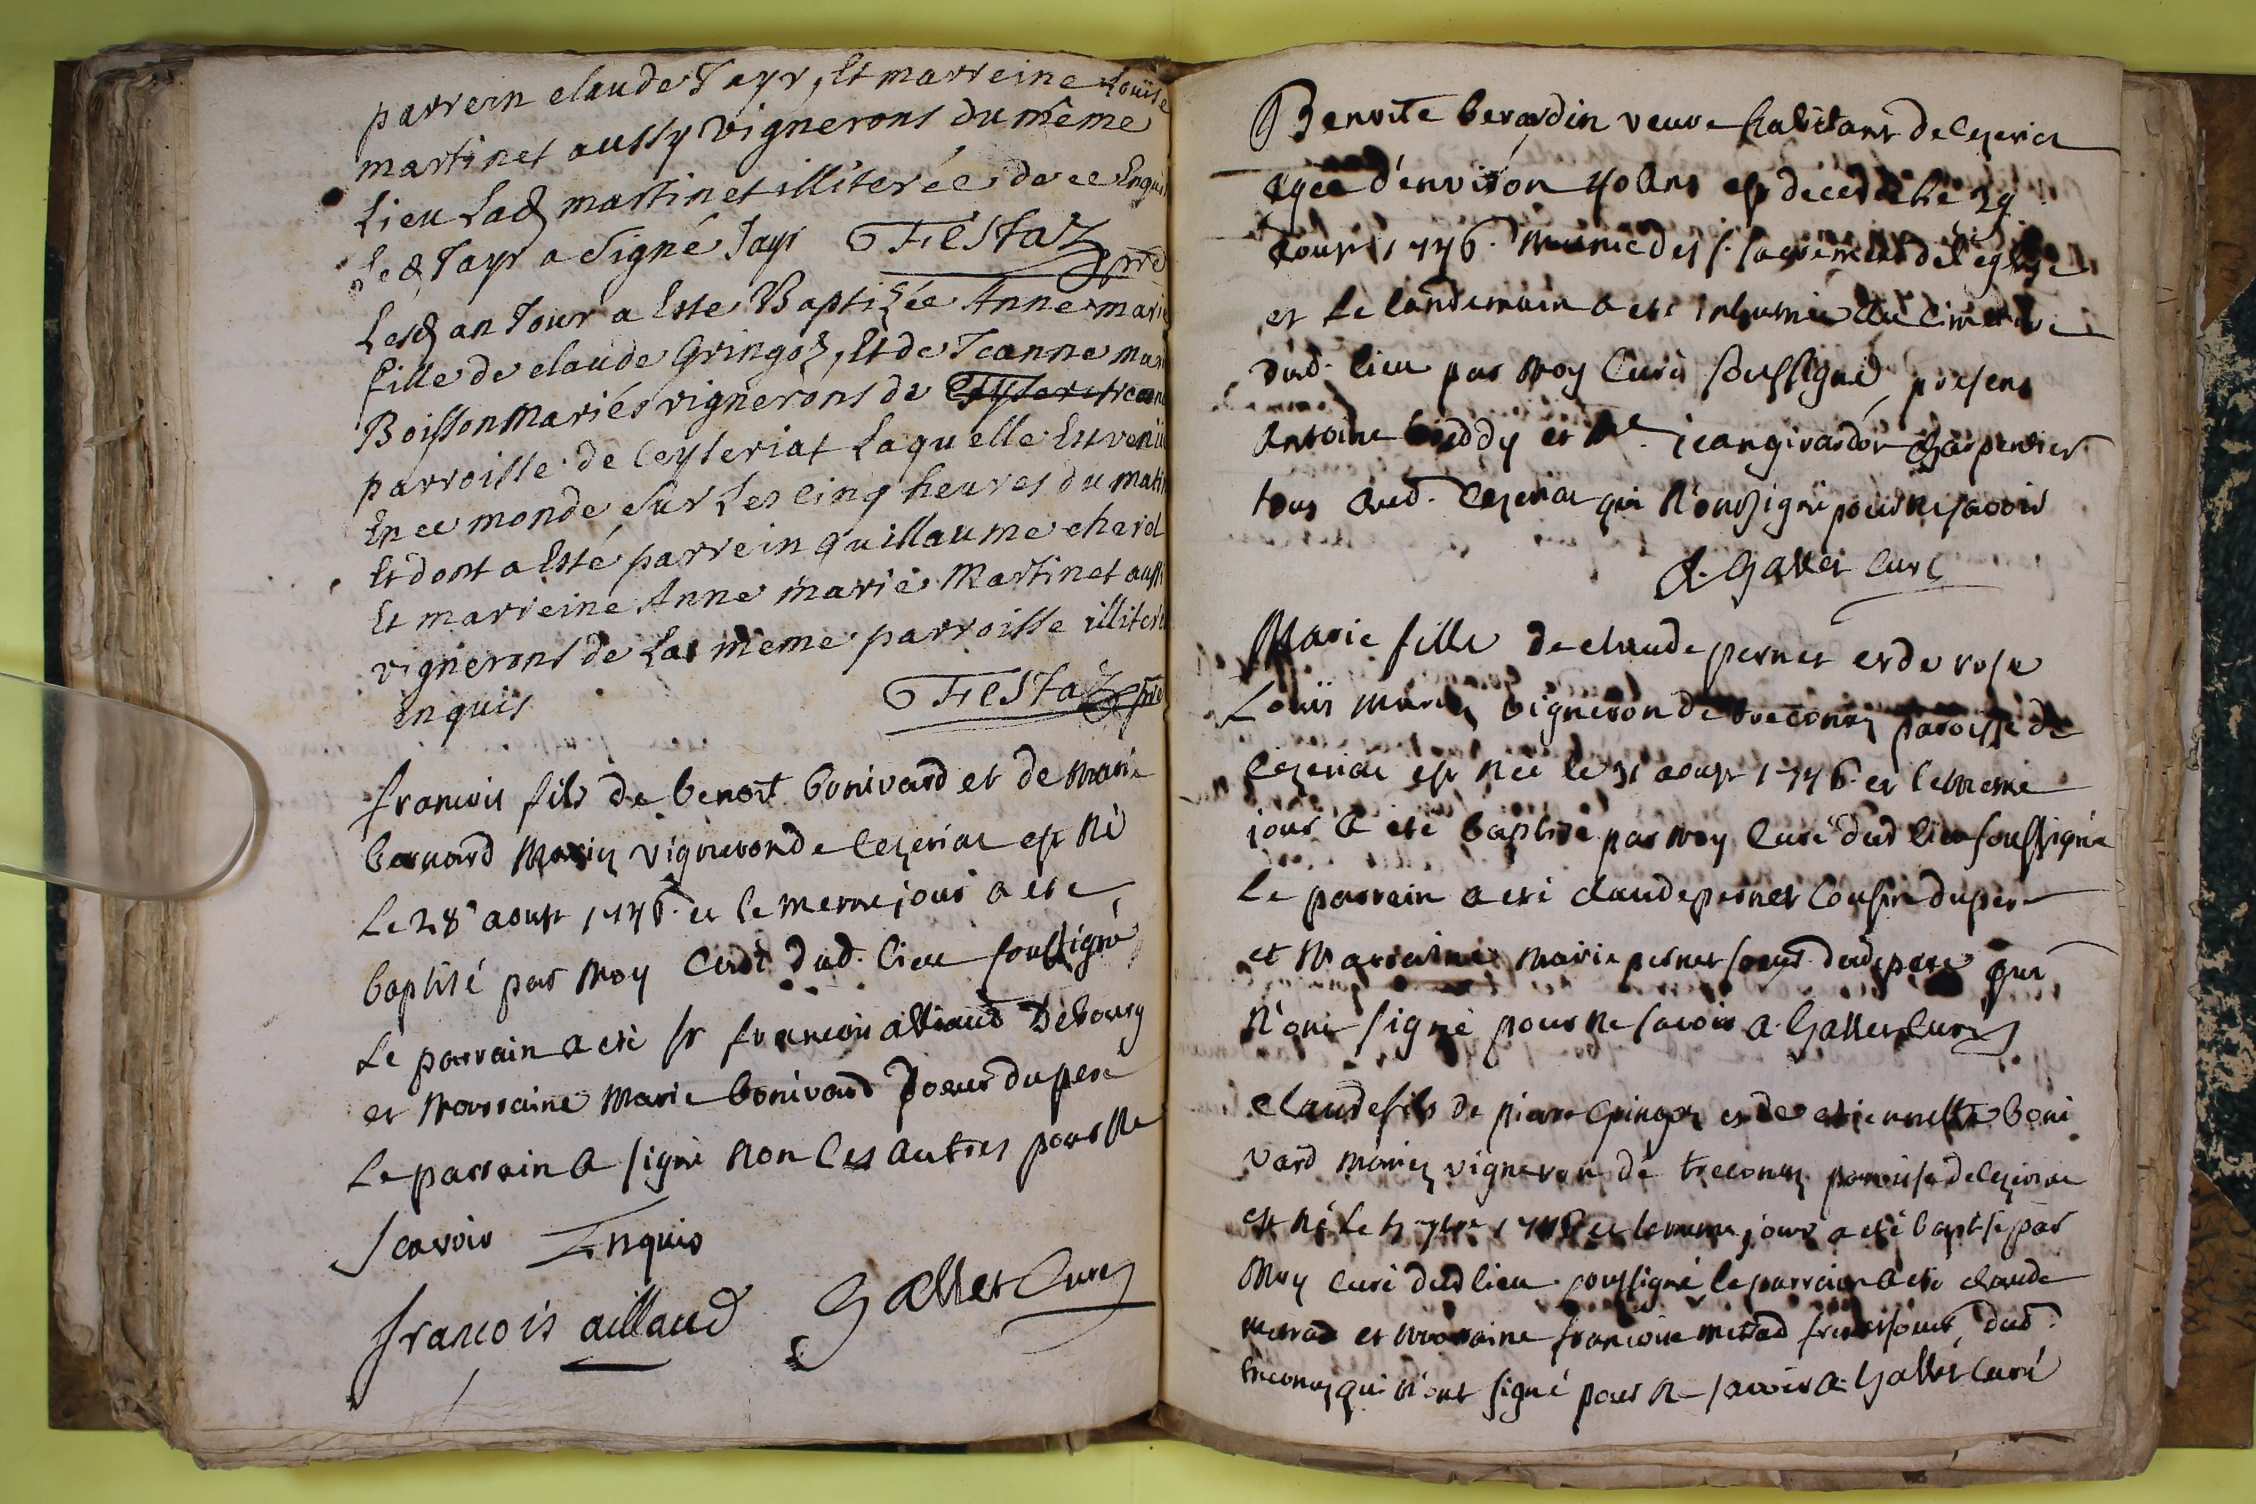 parrein claude Tayr, Et marreine Louise
martinet aussy vignerons du même
Lieu Lad martinet illiterée de ce Enquis
Led Tayr a signé Tayr Festaz pre
Lesd an Jour a Este Baptizée Anne marie
fille de claude Gringoz, Et de Jeanne marie
Boisson Mariés vignerons de
parroisse de Ceyseriat Laquelle Est venüe
En ce monde sur Les cinq heures du matin
Et dont a Esté parrein guillaume
Et marreine Anne marie Martinet aussi
vignerons de La même parroisse illiterés
enquis Festaz pre
francois fils de benoit bonivard et de marie
bernard Mariez vigneron de Cezeriat est Né
Le 28 aoust 1776. et le meme jour a ete
baptisé par Moy Curé dud. lieu soussigné
Le parrain a eté sr francois alliaud De bourg
et Marraine Marie bonivard soeur du pere
Le parrain a signé Non les autres pour Ne
scavoir Enquis
francois aillaud Gallet Curé
Benoite berardin veuve habitant de Cezeriat
agée d'environ 40 Ans est decedée le 29
aoust 1776. Munie des s. sacrements de l'eglise
et Le landemain a eté inhumée au Cimetiere
dud. lieu par Moy Curé soussigné, presens
Antoine et Me. jean girardon charpentier
tous dud. Cezeriat qui N'ont signé pour Ne savoir
A. Gallet Curé
Marie fille de claude pernet et de rose
Louis Mariez vigneron de treconnas paroisse de
Cezeriat est Née le 31 aoust 1776. et le meme
jour a eté baptisé par Moy Curé dud lieu soussigné
Le parrain a eté claude pernet Cousin du pere
et Marraine Marie pernet soeur dud pere qui
N'ont signé pour Ne savoir A. Gallet Curé
Claude fils de pierre Gringoz et de etiennette boni
vard Mariez vigneron de treconnas paroisse de Cezeriat
est Né Le 7bre 1776 et le meme jour a eté baptisé par
Moy Curé dud lieu soussigné, le parrain a eté claude
et Marraine francoise frere et soeur, dud.
treconnas qui N'ont signé pour Ne savoir A. Gallet Curé